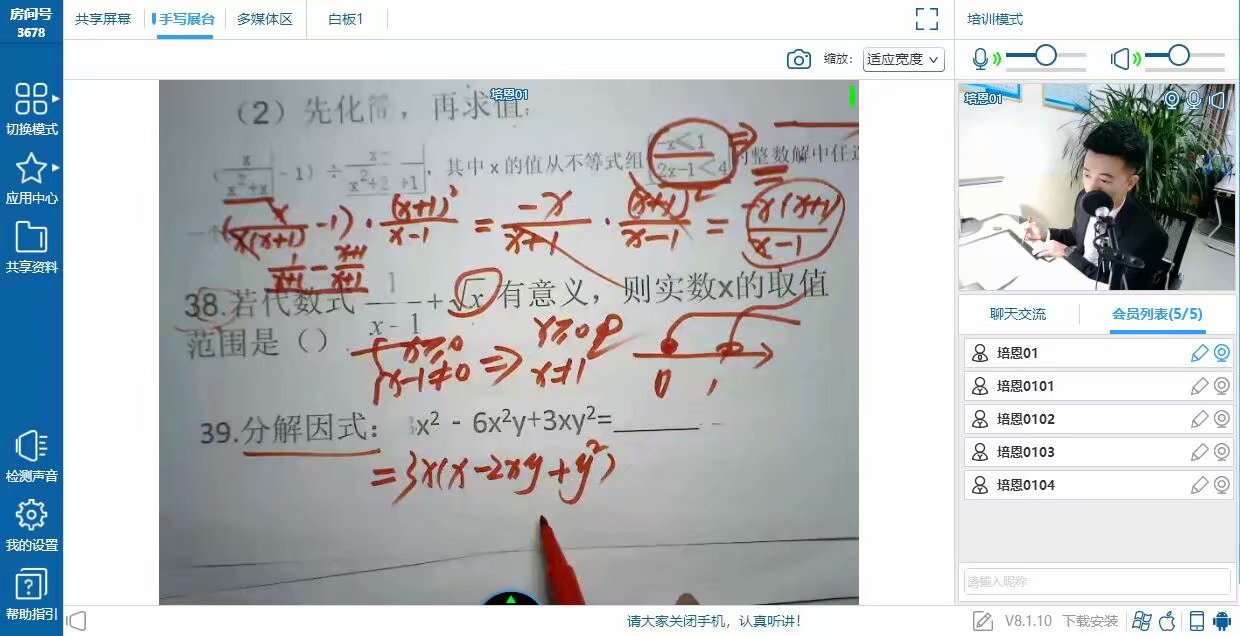 房间号
3678
共享屏幕
手写展台
多媒体区
白板1
培训模式
缩放:
适应宽度
切换模式
应用中心
共享资料
检测声音
我的设置
帮助指引
培恩01
（2）先化简，再求值:
其中x的值从不等式组
-x≤1
2x-1<4
的整数解中任
(x/x(x+1) -1) · (x+1)²/x-1 = -x/x+1 · (x+1)²/x-1 = -x(x+1)/x-1
1/x+1 - x+1/x+1
38.若代数式 1/x-1 +√x 有意义，则实数x的取值
范围是（）
x≥0
x-1≠0
⇒
x≥0
x≠1
0 1
39.分解因式： 3x² - 6x²y+3xy²=______
=3x(x-2xy+y²)
请大家关闭手机，认真听讲!
培恩01
聊天交流
会员列表(5/5)
培恩01
培恩0101
培恩0102
培恩0103
培恩0104
请输入昵称
V8.1.10
下载安装